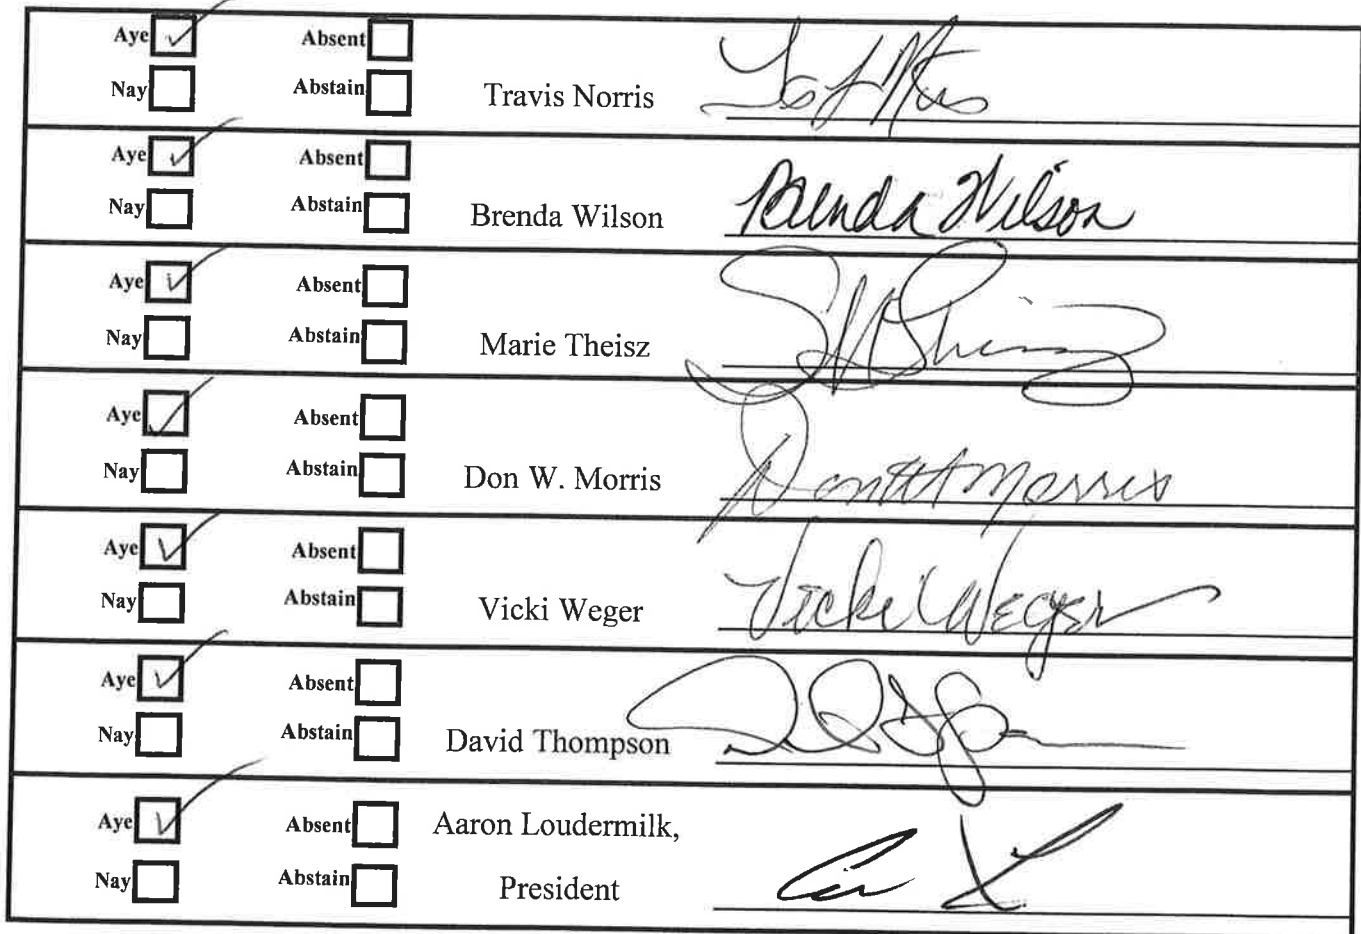 Aye ✓ Absent
Nay Abstain Travis Norris
Aye ✓ Absent
Nay Abstain Brenda Wilson Brenda Wilson
Aye ✓ Absent
Nay Abstain Marie Theisz
Aye ✓ Absent
Nay Abstain Don W. Morris Don W Morris
Aye ✓ Absent
Nay Abstain Vicki Weger Vicki Weger
Aye ✓ Absent
Nay Abstain David Thompson
Aye ✓ Absent Aaron Loudermilk,
Nay Abstain President